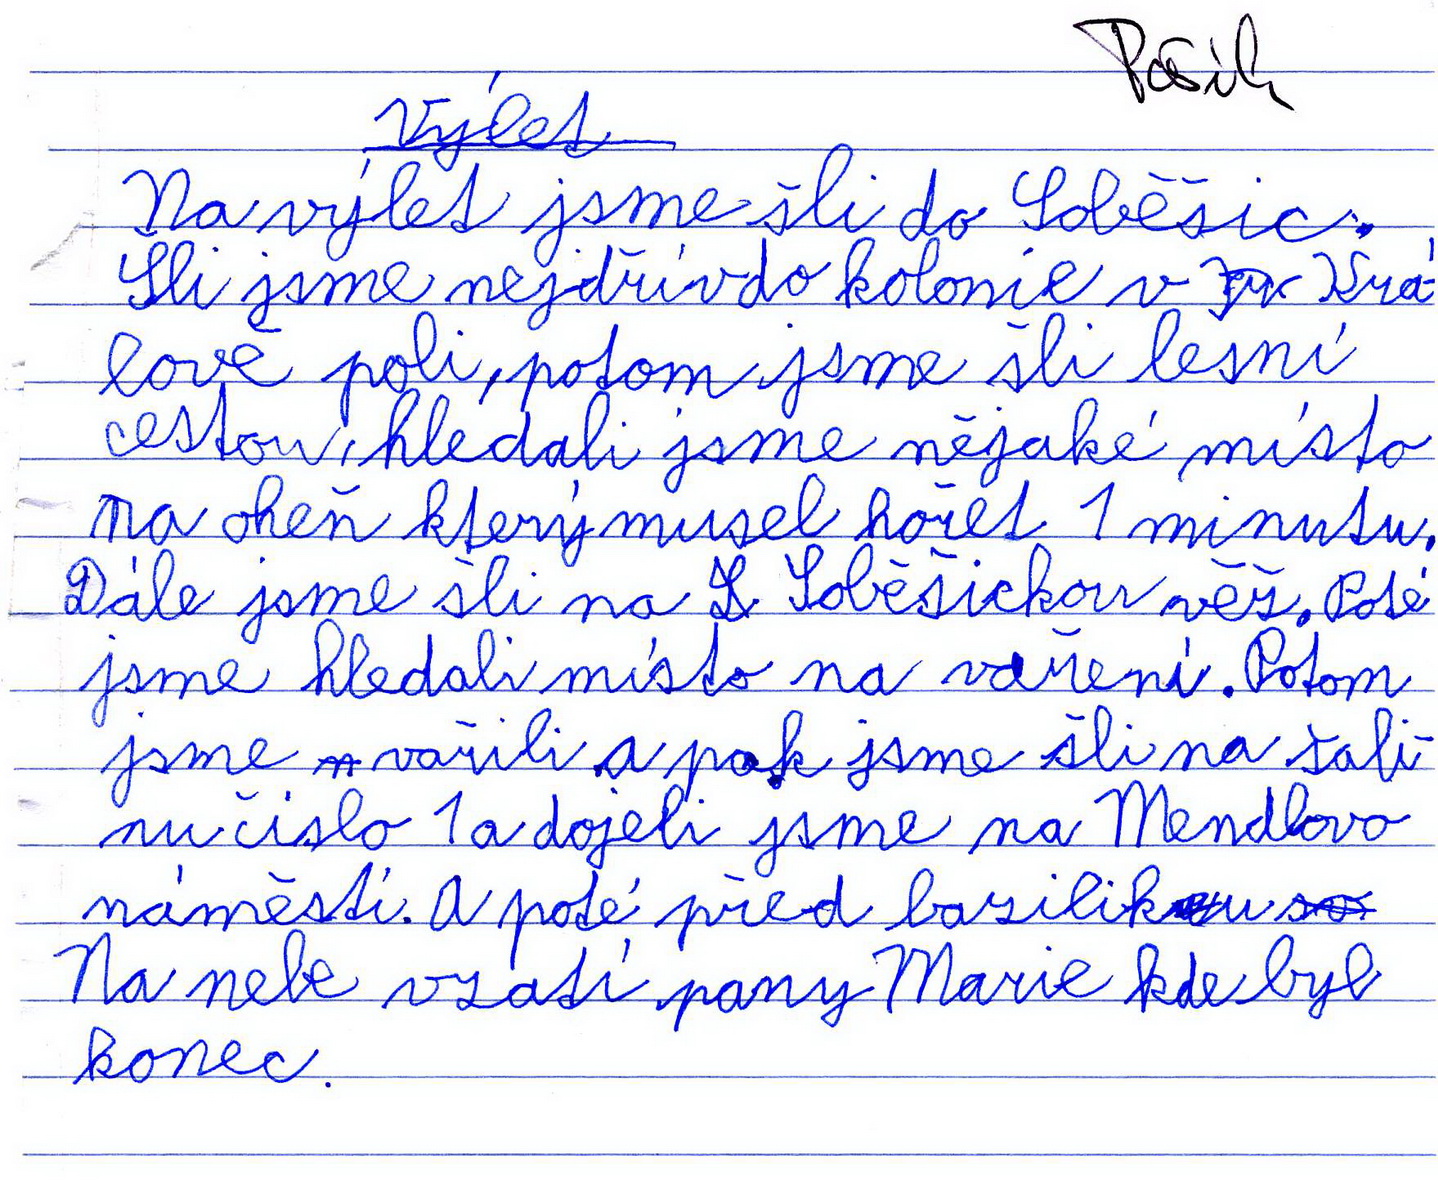 Pašík
Výlet
Na výlet jsme šli do Soběšic.
Šli jsme nejdřív do kolonie v Krá-
lově poli, potom jsme šli lesní
cestou, hledali jsme nějaké místo
na oheň který musel hořet 1 minutu.
Dále jsme šli na Soběšickou věž. Poté
jsme hledali místo na vaření. Potom
jsme vařili a pak jsme šli na šali
nu číslo 1 a dojeli jsme na Mendlovo
náměstí. A poté před baziliku
Na nebe vzatí pany Marie kde byl
konec.